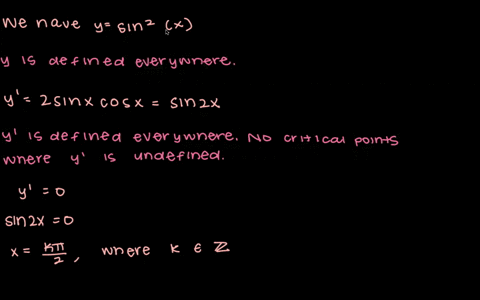 We have y = sin² (x)
y is defined everywhere.
y' = 2sinx cosx = sin2x
y' is defined everywhere. No critical points
where y' is undefined.
y' = 0
sin2x = 0
x = kπ/2, where k ∈ ℤ